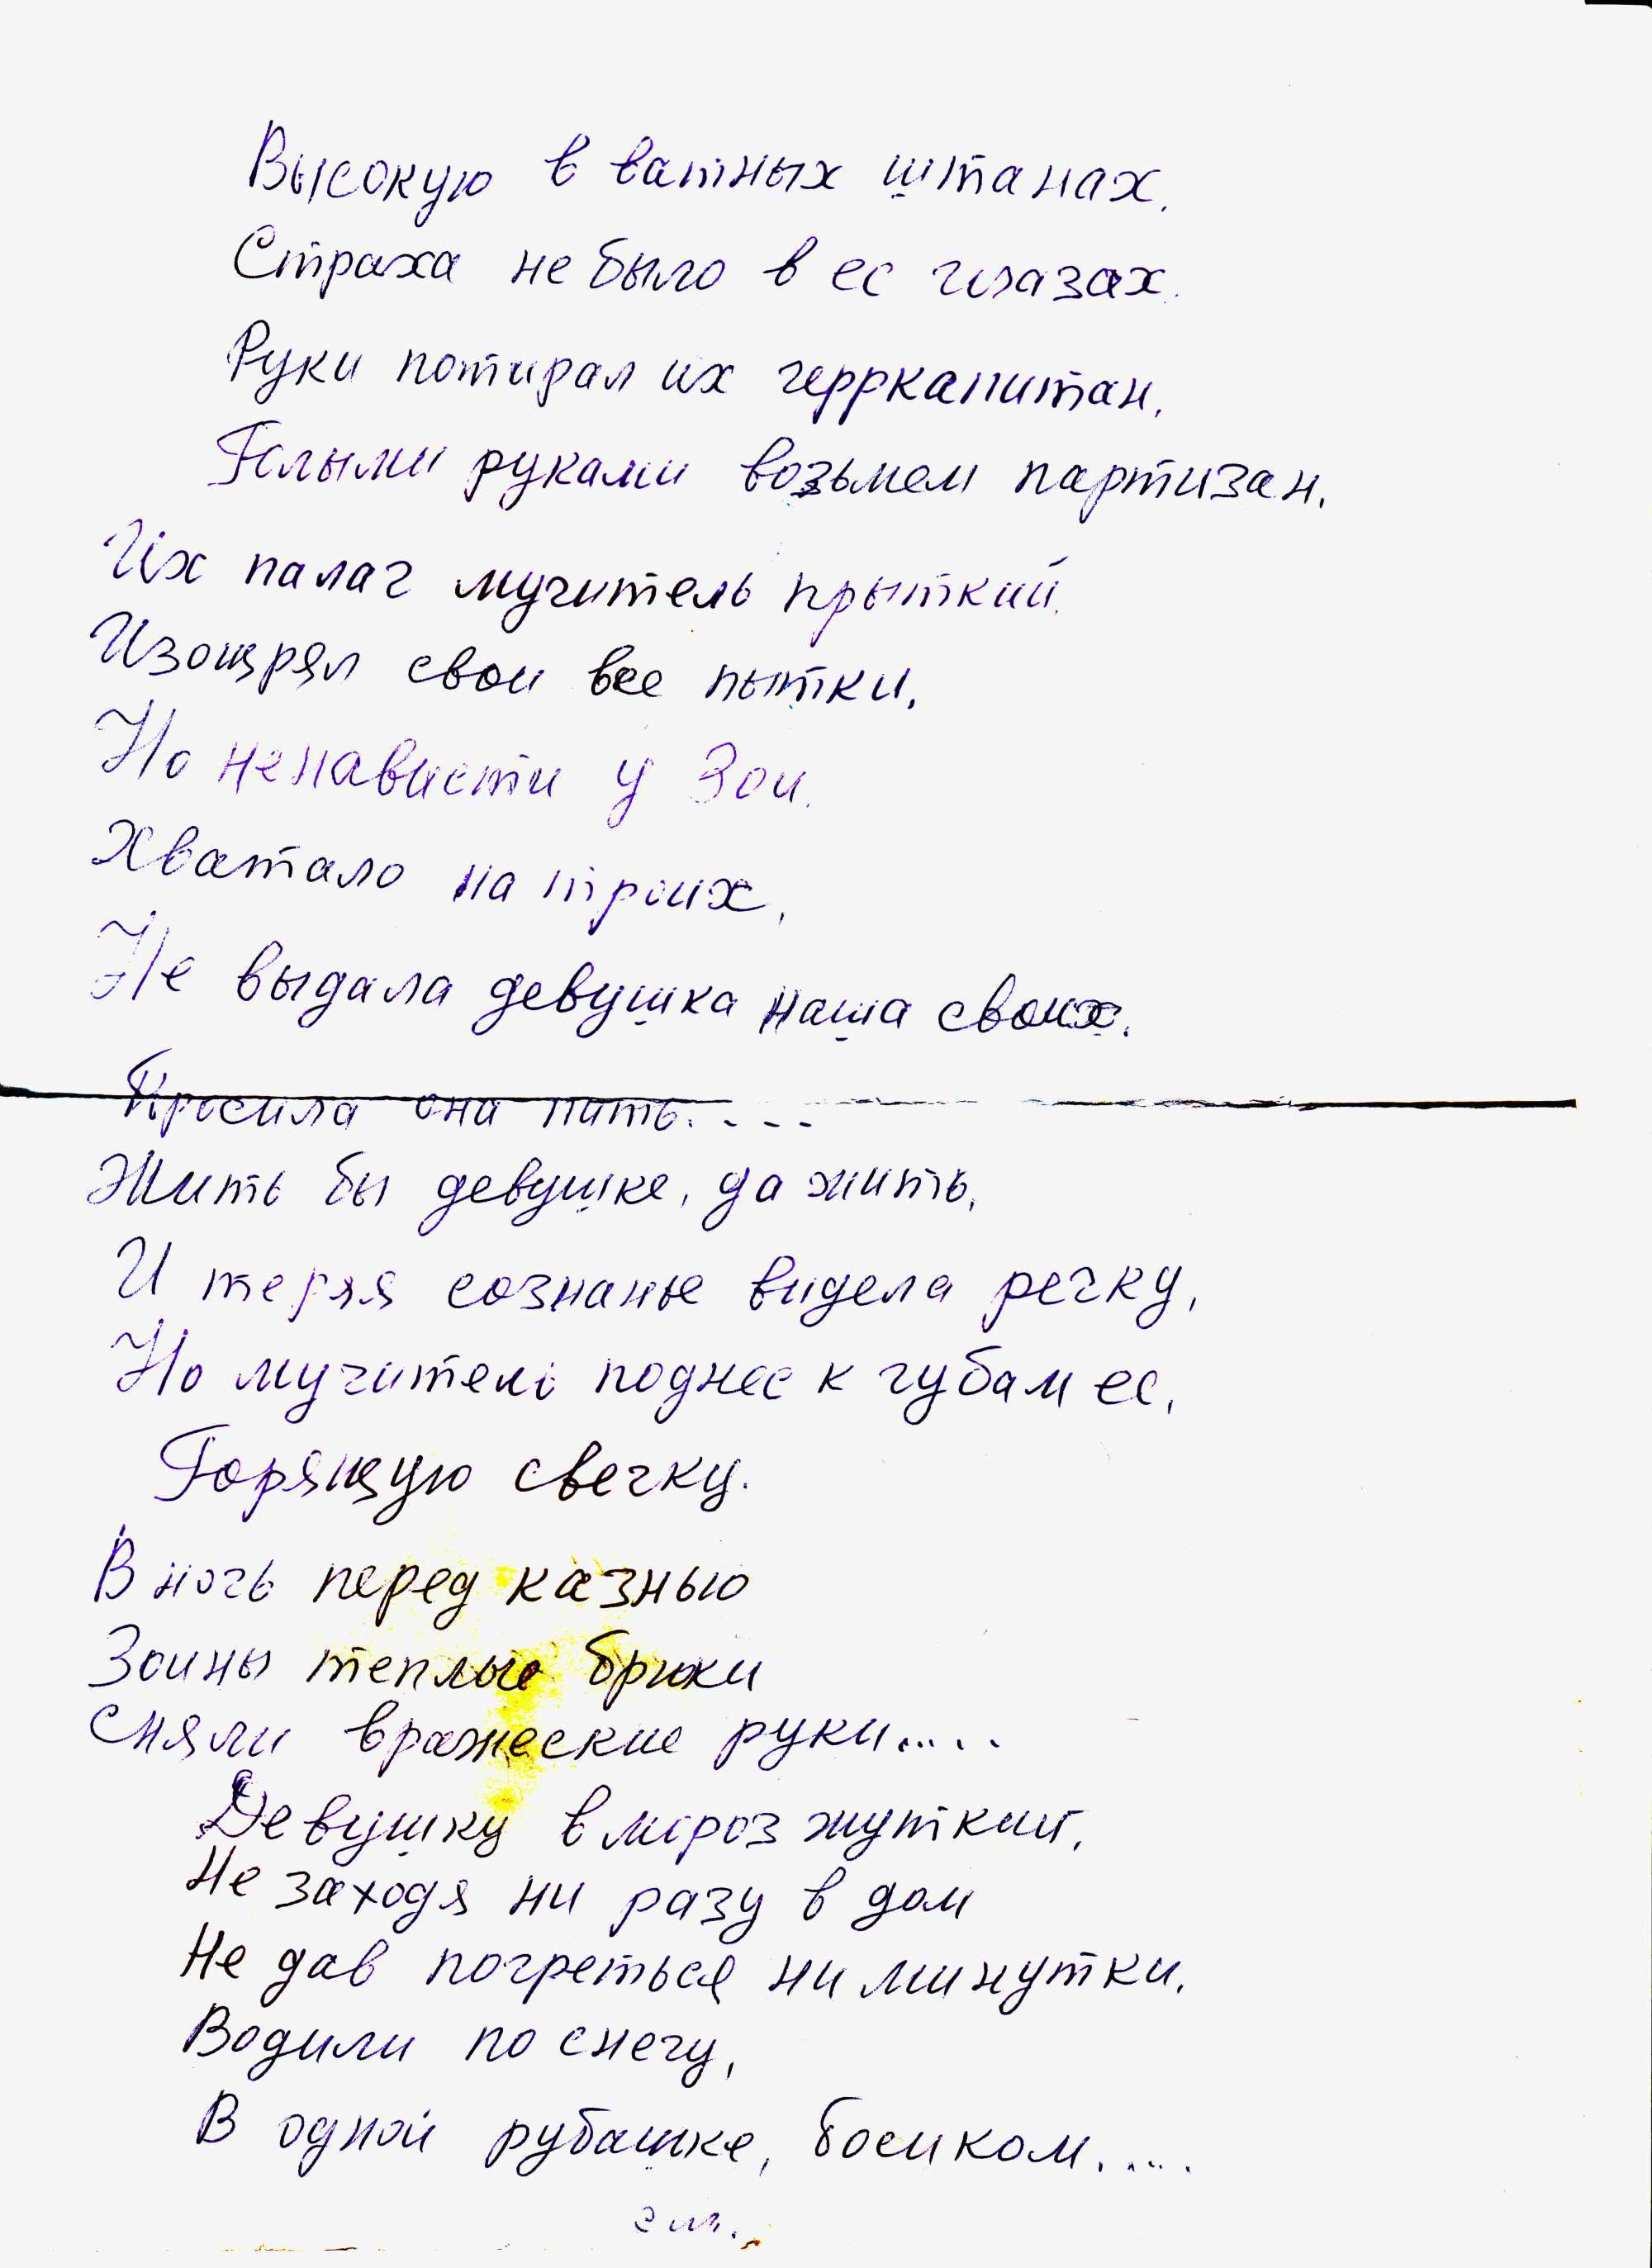 Высокую в ватных штанах.
Страха не было в ее глазах.
Руки потирал их герркапитан,
Голыми руками возьмем партизан.
Их палач мучитель прыткий.
Изощрял свои все пытки,
Но ненависти у Зои.
Хватало на троих,
Не выдала девушка наша своих.
Просила она пить....
Жить бы девушке, да жить,
И теряя сознанье видела речку,
Но мучитель поднес к губам ее,
Горящую свечку.
В ночь перед казнью
Зоины теплые брюки
Сняли вражеские руки.....
Девушку в мороз жуткий,
Не заходя ни разу в дом
Не дав погреться ни минутки.
Водили по снегу,
В одной рубашке, босиком.....